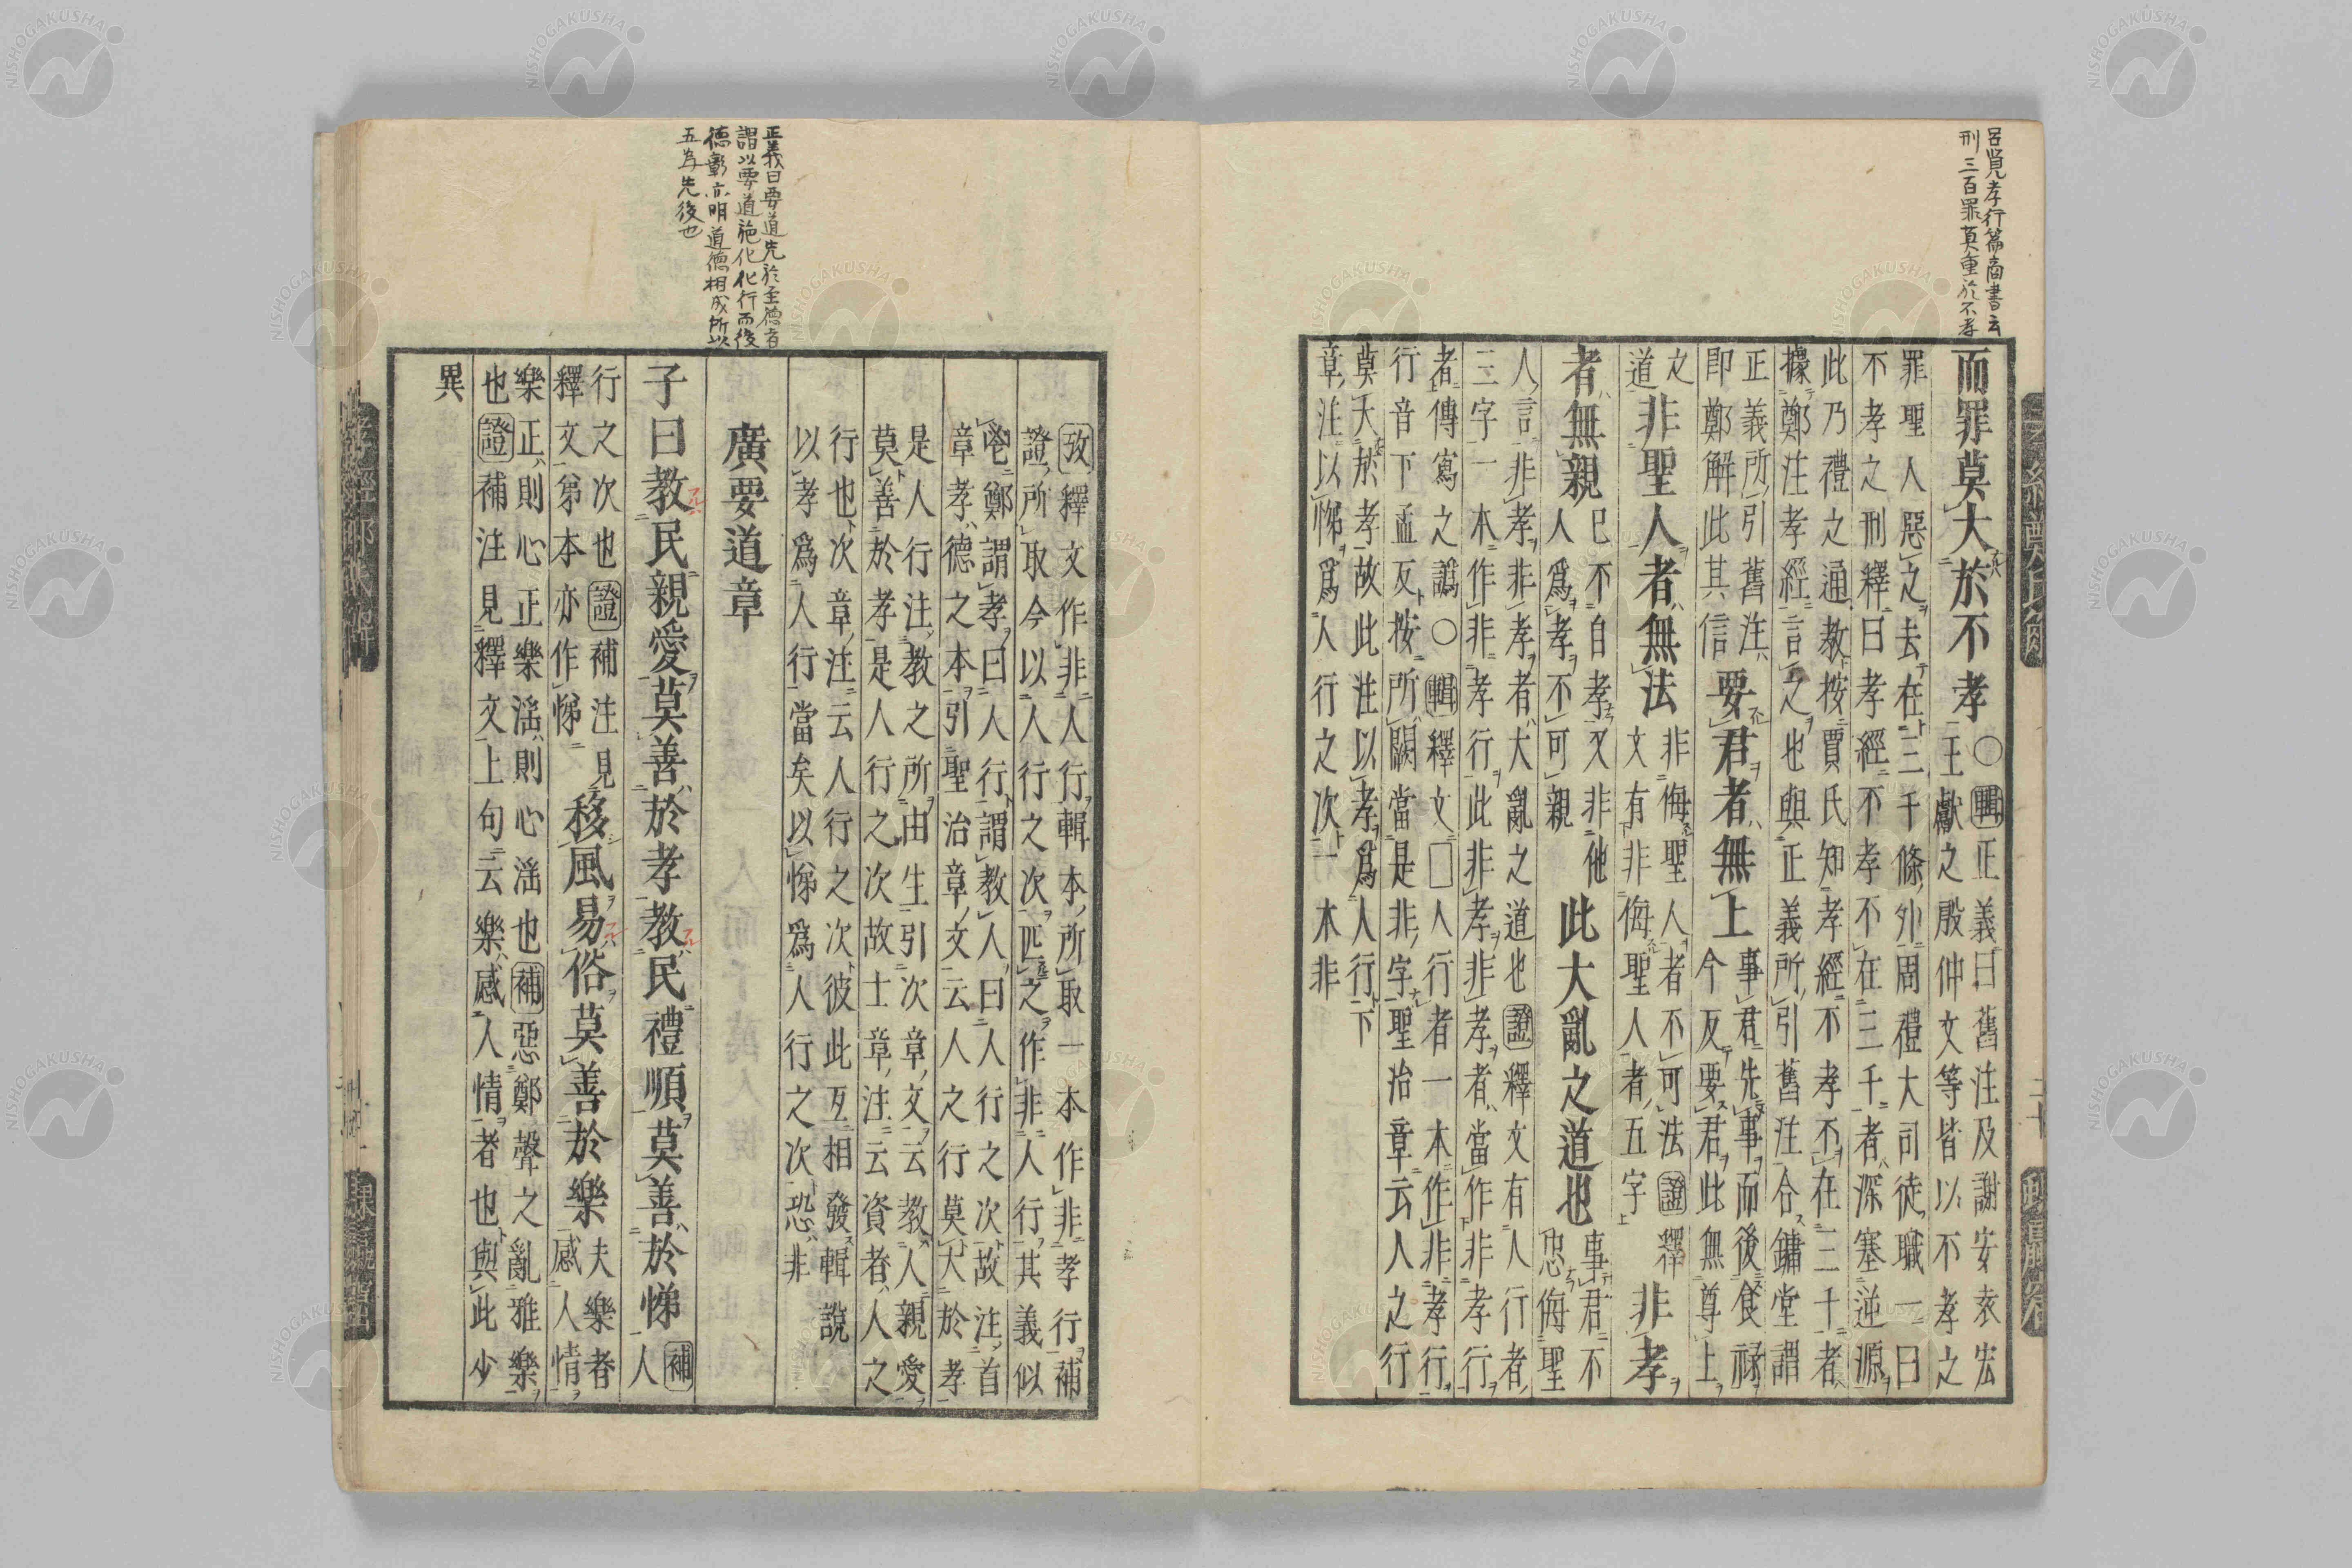 呂覽孝行篇商書云
刑三百罪莫重於不孝
而罪莫大於不孝
○輯正義曰舊注及謝安袁宏
王獻之殷仲文等皆以不孝之
罪聖人惡之去在三千條外周禮大司徒職一曰
不孝之刑釋曰孝經不孝不在三千者深塞逆源
此乃禮之通教按賈氏知孝經不孝不在三千者
據鄭注孝經言之也與正義所引舊注合鏞堂謂
正義所引舊注
即鄭解此其信
要君者無上
事君先事而後食祿
今反要君此無尊上
之
道
非聖人者無法
非侮聖人者不可法證釋
文有非侮聖人者五字
非孝
者無親
已不自孝又非他
人爲孝不可親
此大亂之道也
事君不
忠侮聖
人言非孝非孝者大亂之道也證釋文有人行者
三字一本作非孝行此非孝非孝者當作非孝行
者傳寫之譌○輯釋文□人行者一本作非孝行
行音下孟反按所闕當是非字聖治章云人之行
莫大於孝故此注以孝爲人行下
章注以悌爲人行之次一本非
攷釋文作非人行輯本所取一本作非孝行補
證所取今以人行之次匹之作非人行其義似
鄭謂孝曰人行謂教人曰人行之次故注首
章孝德之本引聖治章文云人之行莫大於孝
是人行注教之所由生引次章文云教人親愛
莫善於孝是人行之次故士章注云資者人之
行也次章注云人行之次彼此互相發輯說
以孝爲人行當矣以悌爲人行之次恐非
廣要道章
子曰教民親愛莫善於孝教民禮順莫善於悌
補
人
行之次也證補注見
釋文第本亦作悌
移風易俗莫善於樂
夫樂者
感人情
樂正則心正樂滛則心滛也補惡鄭聲之亂雅樂
也證補注見釋文上句云樂感人情者也與此少
異
正義曰要道先於至德者
謂以要道施化化行而後
德彰亦明道德相成所以
五為先後也
孝經鄭氏解